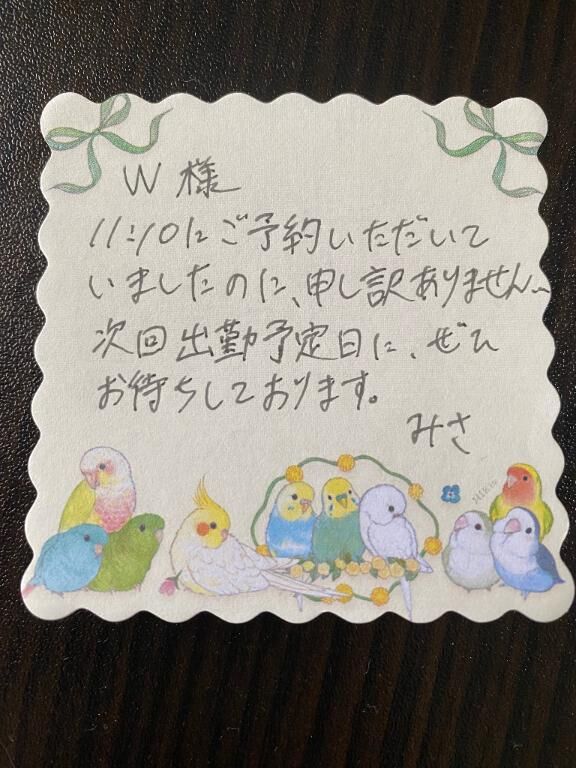 W 様
11:10にご予約いただいて
いましたのに、申し訳ありません。
次回出勤予定日に、ぜひ
お待ちしております。
みさ